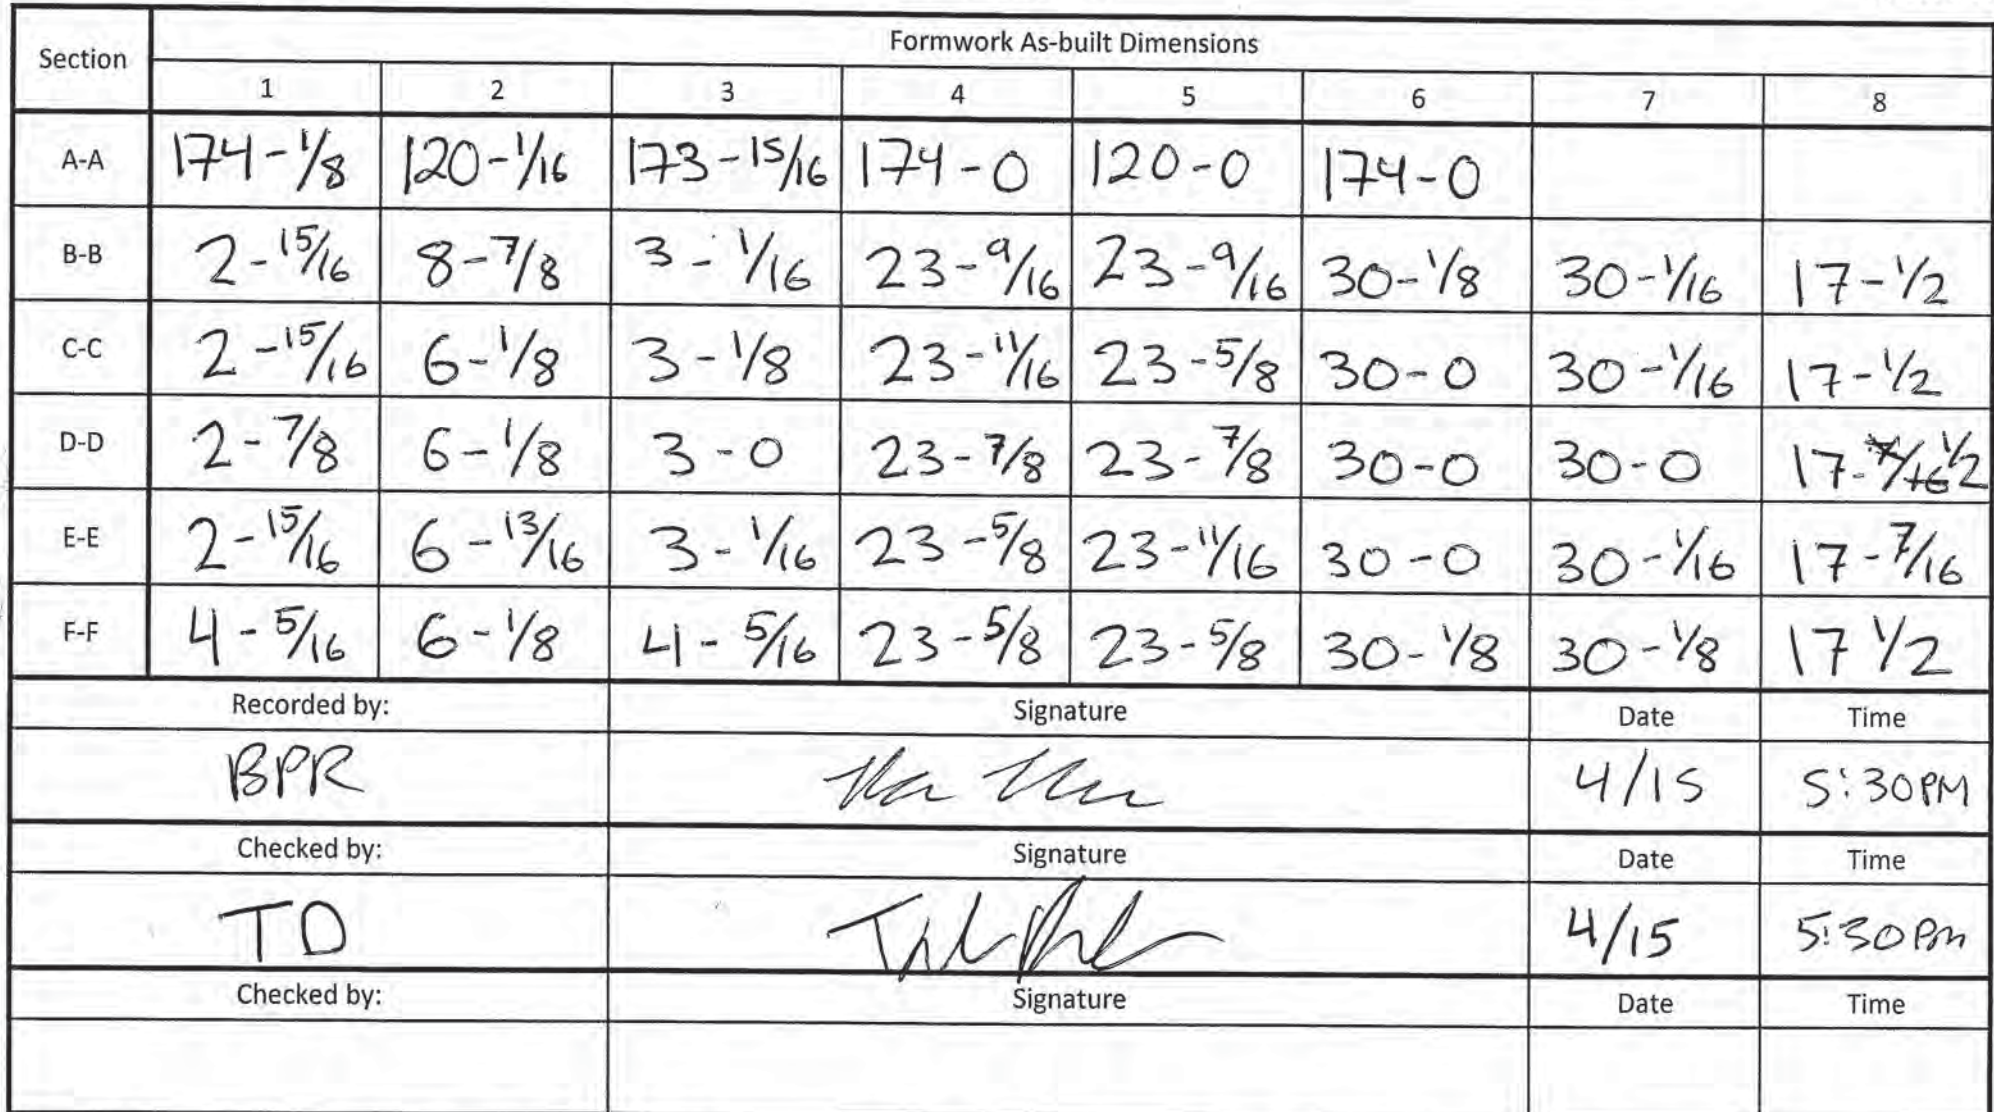 Section Formwork As-built Dimensions
1 2 3 4 5 6 7 8
A-A 174-1/8 120-1/16 173-15/16 174-0 120-0 174-0
B-B 2-15/16 8-7/8 3-1/16 23-9/16 23-9/16 30-1/8 30-1/16 17-1/2
C-C 2-15/16 6-1/8 3-1/8 23-11/16 23-5/8 30-0 30-1/16 17-1/2
D-D 2-7/8 6-1/8 3-0 23-7/8 23-7/8 30-0 30-0 17-7/16 1/2
E-E 2-15/16 6-13/16 3-1/16 23-5/8 23-11/16 30-0 30-1/16 17-7/16
F-F 4-5/16 6-1/8 4-5/16 23-5/8 23-5/8 30-1/8 30-1/8 17 1/2
Recorded by: Signature Date Time
BPR 4/15 5:30PM
Checked by: Signature Date Time
TD 4/15 5:30PM
Checked by: Signature Date Time